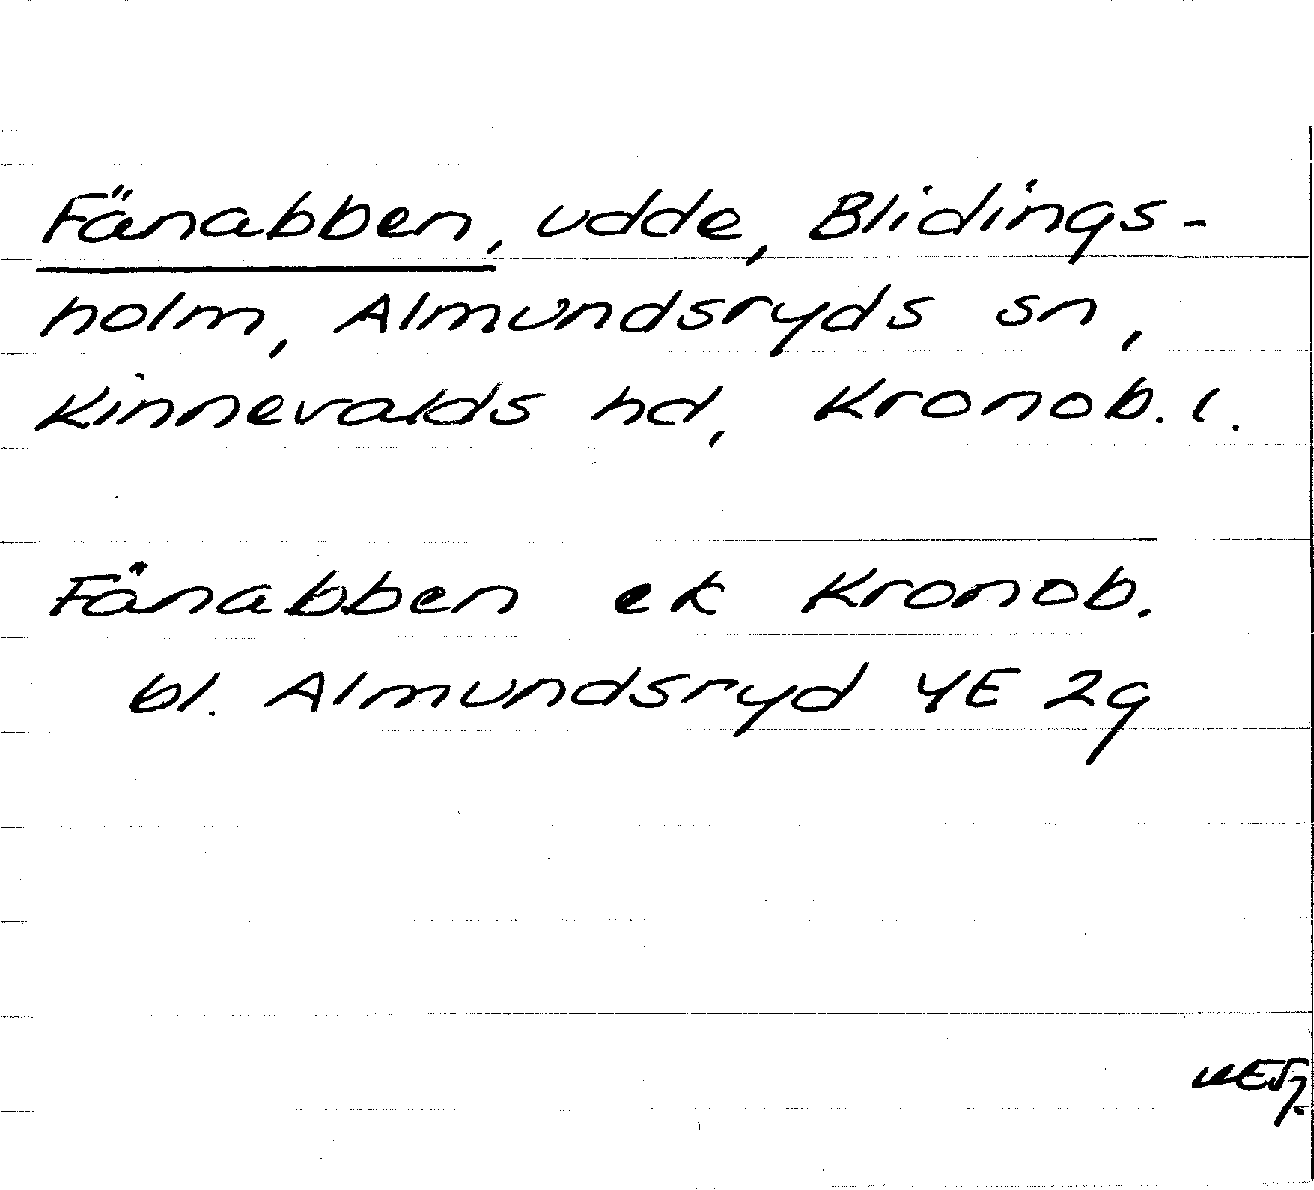 Fänabben, udde, Blidings-
holm, Almundsryds sn,
Kinnevalds hd, Kronob. l.
Fånabben ek Kronob.
bl. Almundsryd 4E 2g